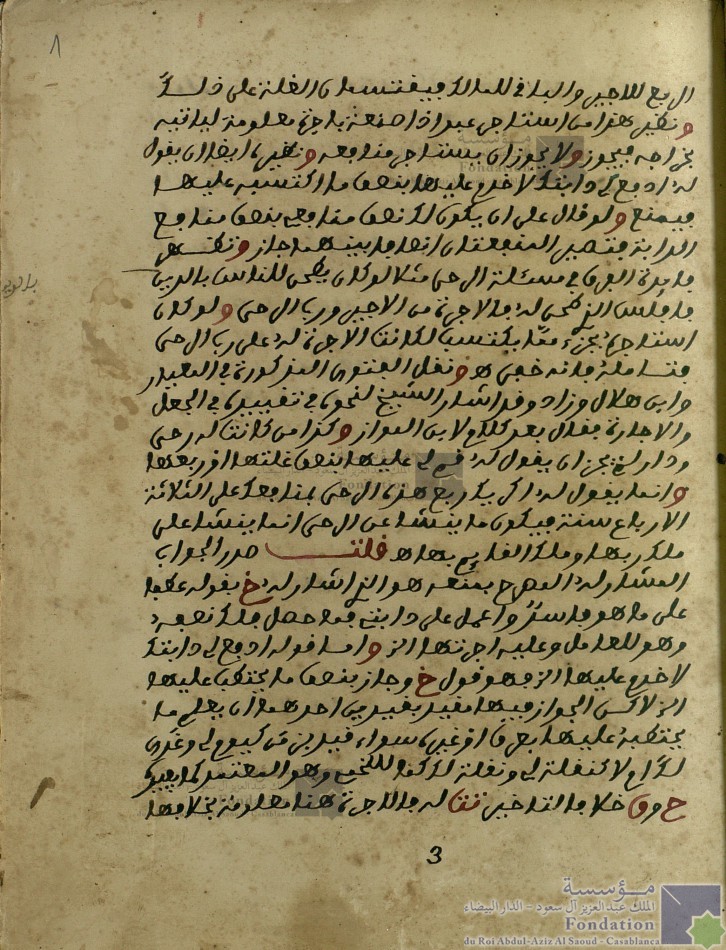 ٨
الربع للاجير والباقي للمالك فيقتسمان الغلة على ذلك
ونظير هذا من استأجر عبدا ذا صنعة باجرة معلومة لياتيه
بخراجه فيجوز ولا يجوز ان يستاجر منافعه ونظيرنا ايضا ان يقول
له ادفع لي دابتك لاخدم عليها بنصف ما اكتسبه عليها
فيمنع ولو قال على ان يكون لك نصف منافعي بنصف منافع
الدابة فتصير المنفعتان انهما ما بينهما جاز وتظهر
فايدة الفرق في مسئلة الرحى مثلا لو كان يطحن للناس بالدين
فافلس الذي طحن له فالاجرة من الاجير ورب الرحى ولو كان
استاجره بجزء مما يكتسب لكانت الاجرة له على رب الرحى
فتامله فانه خفي هـ ونقل الفتوى المذكورة في المعيار
وابن هلال وزاد وقد اشار الشيخ لنحو ما في تقييده في الجعل
والاجارة فقال بعد كلام لابن المواز وكذا من كانت له رحى
ودار لم يجز ان يقول له قم لي عليها بنصف غلتها او ربعها
وانما يقول له اكر ربع هذه الرحى بمنافعك على الثلاثة
الارباع سنة فيكون ما ينشأ عن الرحى انما ينشأ على
ملك ربها وملك القايم بها هـ قلت صدر الجواب
المشار له المصرح بمنعه هو الذي اشار له خ بقوله عطفا
على ما هو فاسد واعمل على دابتي فما حصل فلك نصفه
وهو للعامل وعليه اجرتها الخ واما قوله ادفع لي دابتك
لاخدم عليها الخ فهو قول خ وجاز بنصف ما يحتطب عليها
الخ لاكن الجواز فيها مقيد بقيدين احدهما ان يعلم ما
يحتطبه عليها بعرف او غيره سواء قيد بزمن كيوم لي وغدا
لك ام لا كنقلة لي ونقلة لك كما للخمي وهو المعتمد كما يفيده
ح وق خلافا لتاخير تت له فالاجرة هنا معلومة بخلافها
بالدين
3
مؤسسة
الملك عبد العزيز آل سعود - الدار البيضاء
Fondation
du Roi Abdul-Aziz Al Saoud - Casablanca